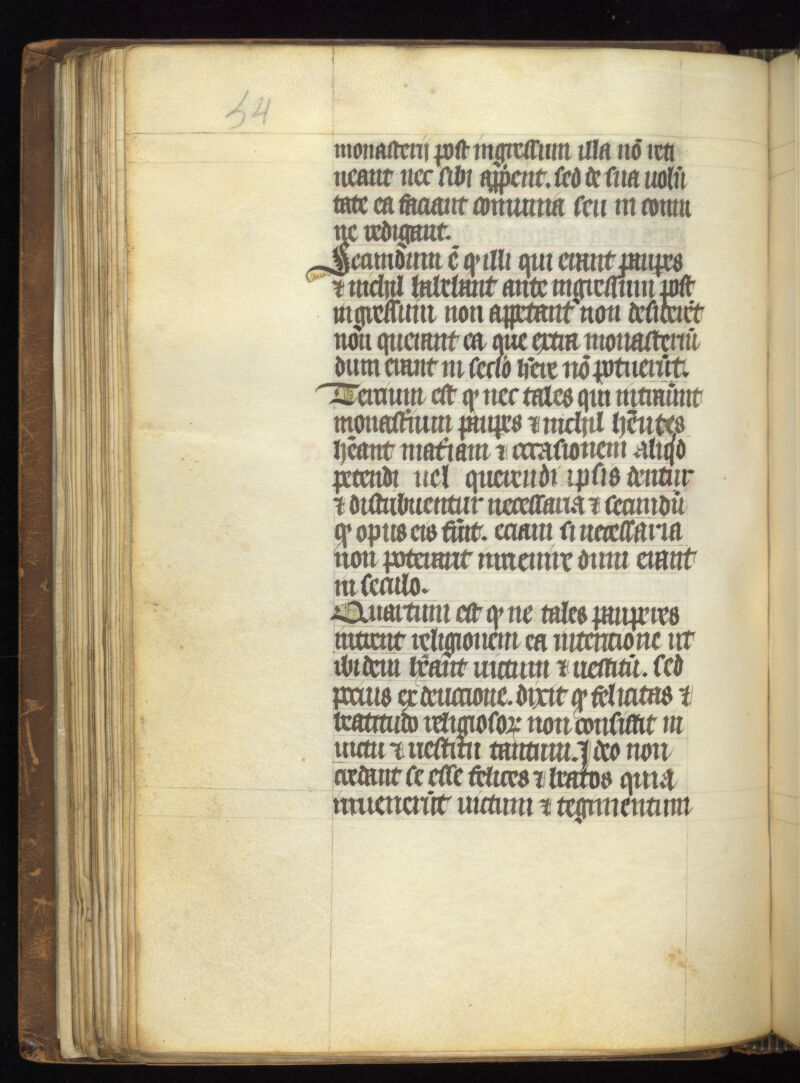 54
monasterij post ingressum illa nō reti
neant nec sibi app̄ent. sed de sua uolū
tate ea faciant comunia seu in comu
ne redigant.
Secundum ē qͥ illi qui erant paup̄es
⁊ nichil habebant ante ingressum post
ingressum non appetant non desiderēt
non querant ea que extra monasteriū
dum erant in seclo h̄ere nō potuerūt.
Tercium est qͥ nec tales qui intraūnt
monast̄ium paup̄es ⁊ nichil hēntes
hēant mat̄iam ⁊ occasionem aliqd
petendi uel querendi ipsis dentur
⁊ distribuentur necessaria ⁊ secundū
qͥ opus eis fūit. eciam si necessaria
non poterant inuenire dum erant
in seculo.
Quartum est qͥ ne tales pauperes
intrent religionem ea intentione ut
ibidem h̄eant uictum ⁊ uestitū. sed
pocius ex deuocione. dixit qͥ felicitas ⁊
beatitudo religiosoꝝ non consistit in
uictu ⁊ uestitu tantum. Ideo non
credant se esse felices ⁊ beatos quia
inuenerūt uictum ⁊ tegumentum